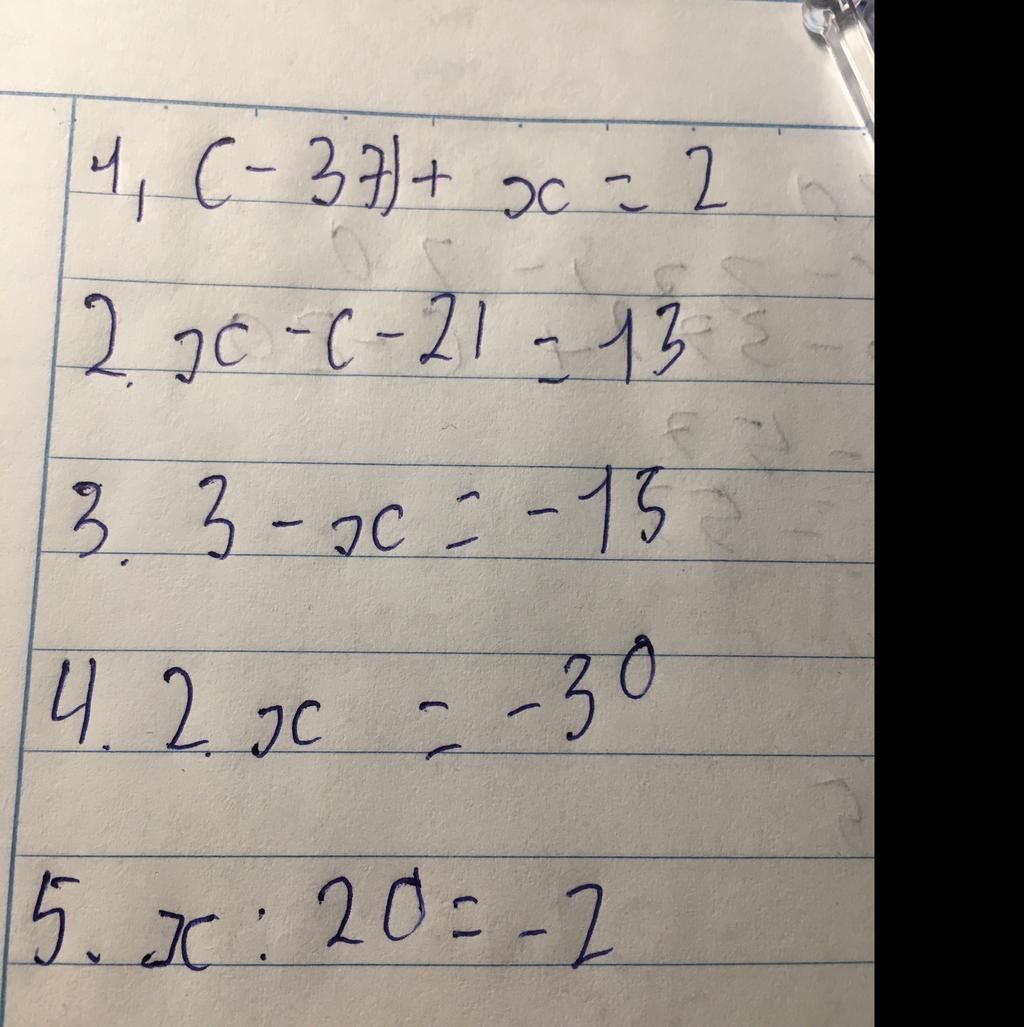 1, (-37)+ x = 2
2. x -(-21 = 13
3. 3 - x = -15
4. 2. x = -30
5. x : 20 = -2